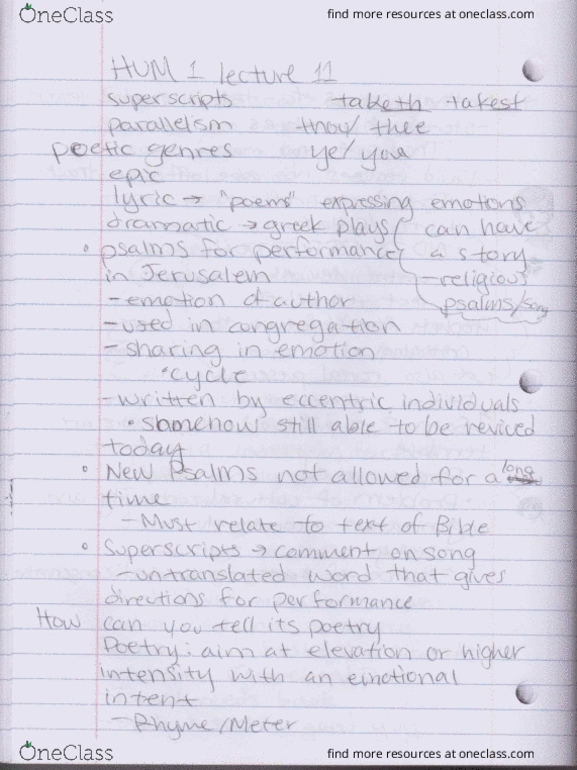 OneClass find more resources at oneclass.com
HUM 1 lecture 11
superscripts taketh takest
parallelism thou/thee
poetic genres ye/you
epic
lyric → "poems" expressing emotions
dramatic → greek plays can have
• psalms for performance a story
in Jerusalem - religious
- emotion of author psalms/song
- used in congregation
- sharing in emotion
• cycle
- written by eccentric individuals
• somehow still able to be revived
today
• New Psalms not allowed for a long
time
- Must relate to text of Bible
• Superscripts → comment on song
- untranslated word that gives
directions for performance
How can you tell its poetry
Poetry: aim at elevation or higher
intensity with an emotional
intent
- Rhyme/Meter
OneClass find more resources at oneclass.com